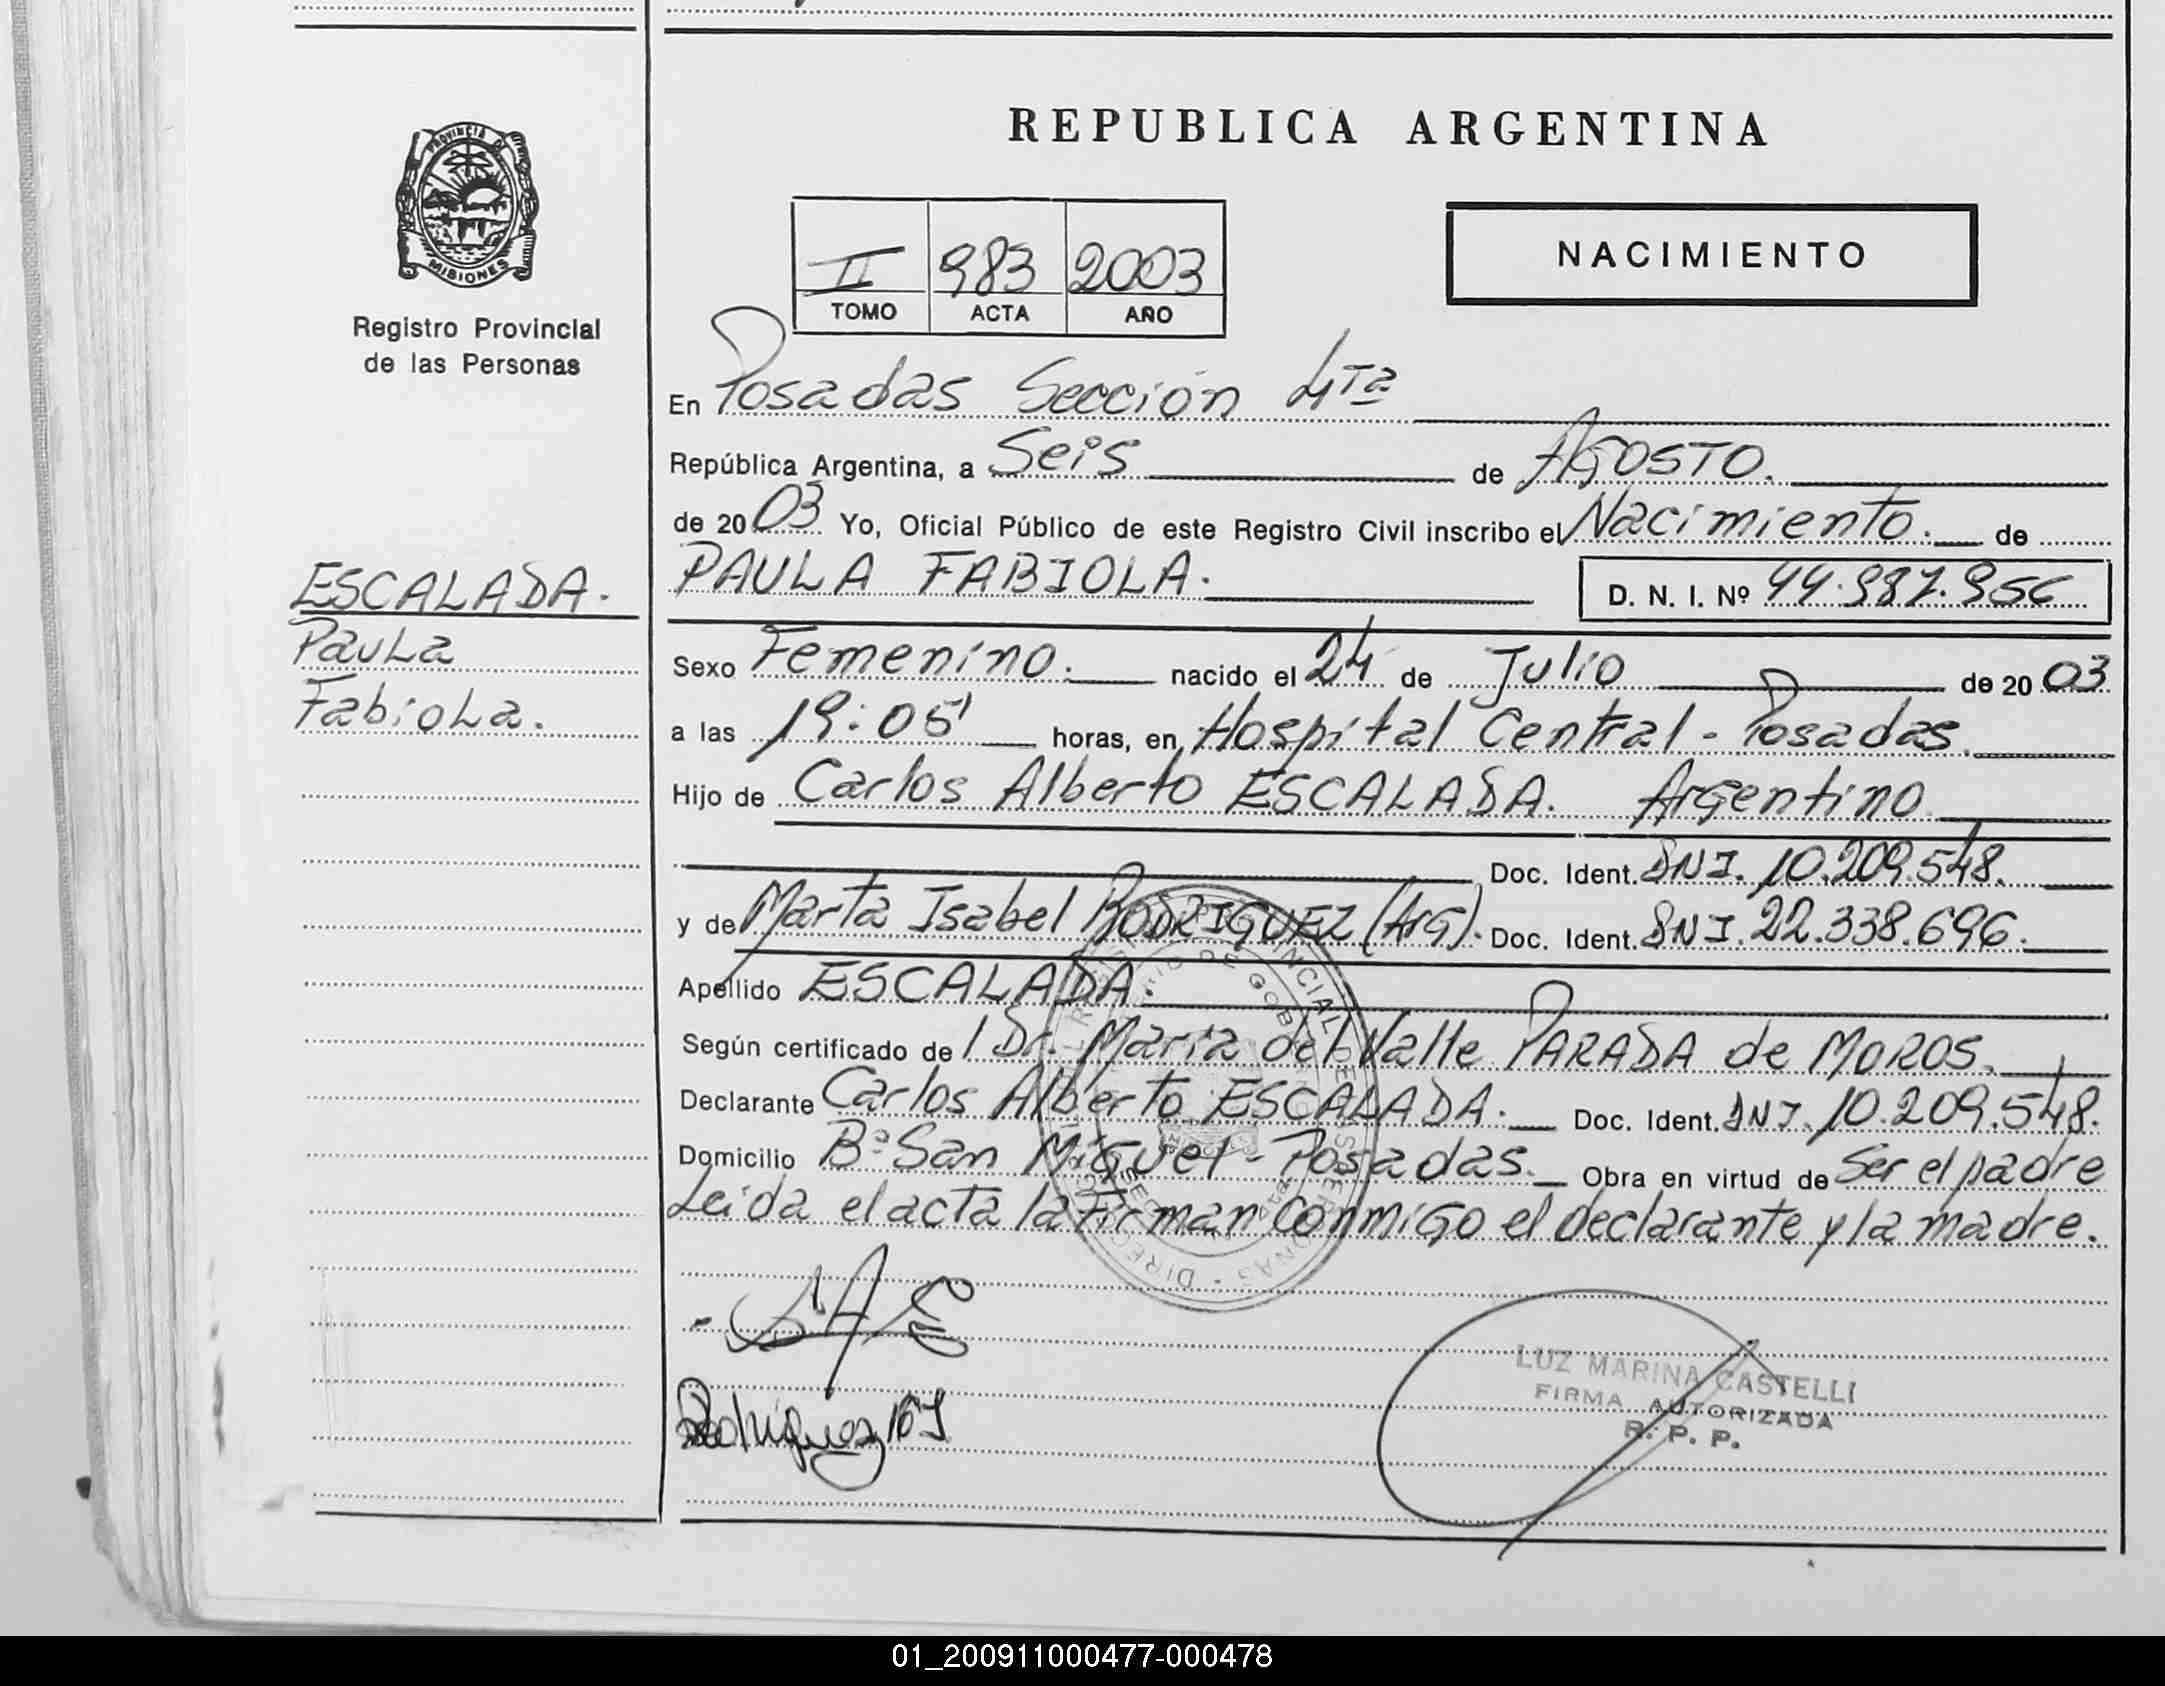 PROVINCIA DE
MISIONES
Registro Provincial
de las Personas
ESCALADA.
Paula
Fabiola.
REPUBLICA ARGENTINA
II 983 2003
TOMO ACTA AÑO
NACIMIENTO
En Posadas Sección 4ta
República Argentina, a Seis de AGOSTO.
de 2003 Yo, Oficial Público de este Registro Civil inscribo el Nacimiento. de
PAULA FABIOLA. D. N. I. Nº
Sexo Femenino. nacido el 24 de Julio de 2003
a las 19:05' horas, en Hospital Central - Posadas.
Hijo de Carlos Alberto ESCALADA. Argentino
Doc. Ident. DNI. 10.209.548.
y de Marta Isabel RODRIGUEZ (ArG). Doc. Ident. DNI. 22.338.696.
Apellido ESCALADA.
Según certificado de / Dr. María del Valle PARADA de MOROS.
Declarante Carlos Alberto ESCALADA. Doc. Ident. DNI. 10.209.548.
Domicilio Bº San Miguel - Posadas. Obra en virtud de Ser el padre
Leida el acta la Firman Conmigo el declarante y la madre.
LUZ MARINA CASTELLI
FIRMA AUTORIZADA
R. P. P.
Rodriguez
01_200911000477-000478